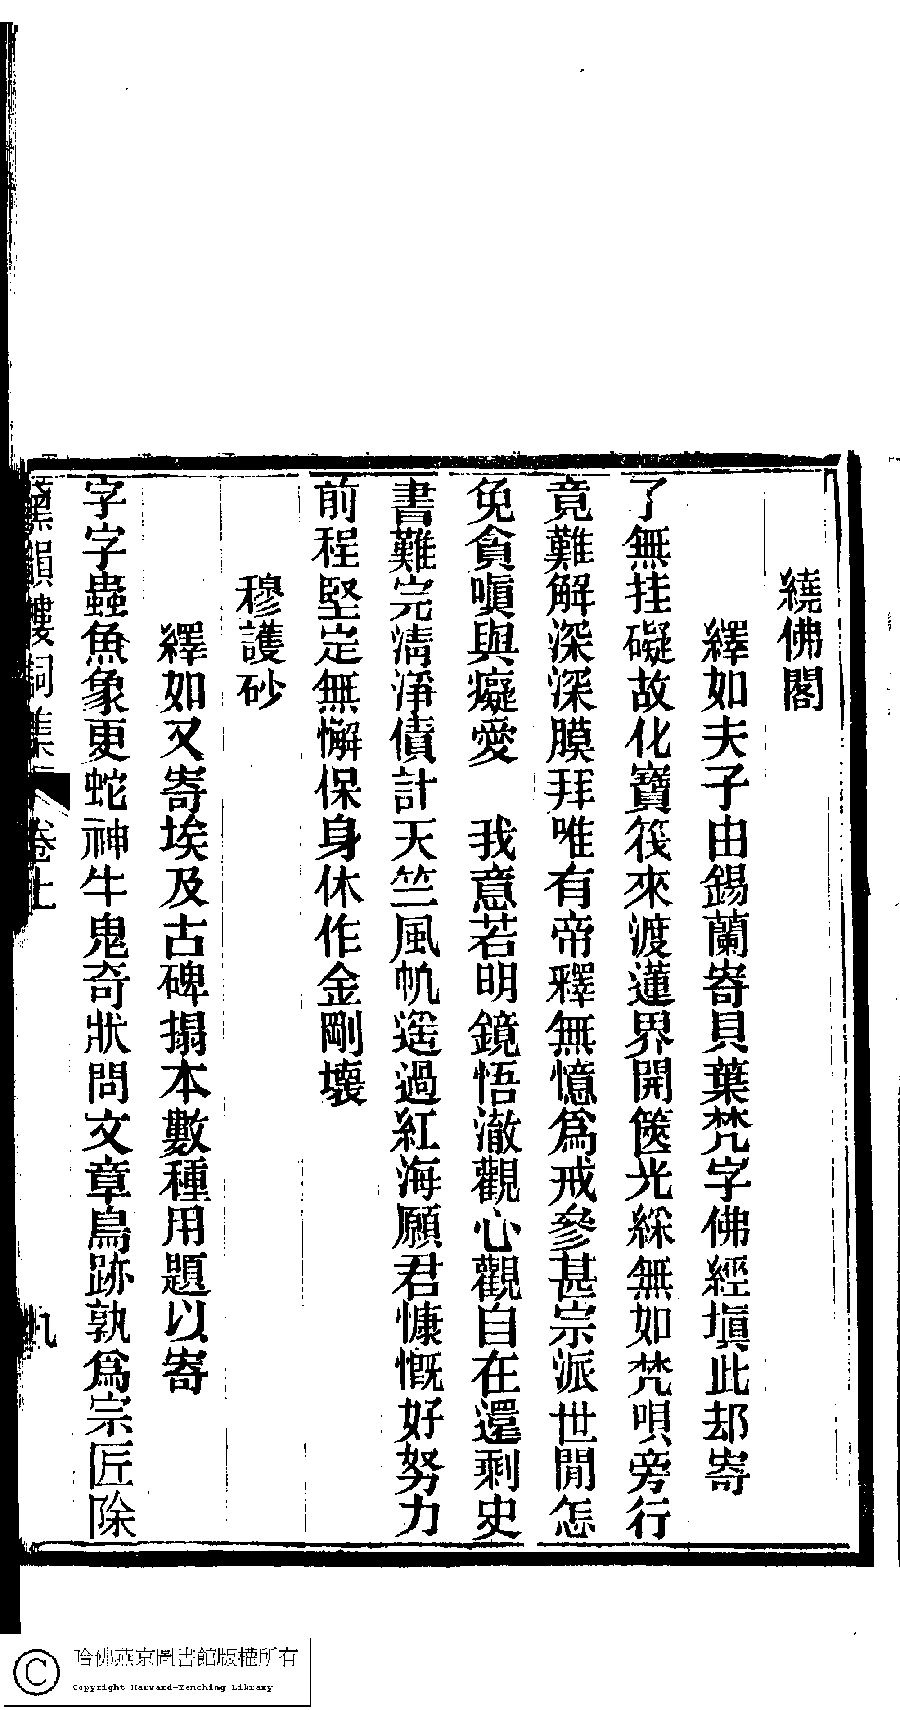 繞佛閣
繹如夫子由錫蘭寄貝葉梵字佛經塡此却寄
了無挂礙故化寶筏來渡蓮界開篋光綵無如梵唄旁行
竟難解深深膜拜唯有帝釋無憶爲戒參甚宗派世閒怎
免貪嗔與癡愛　我意若明鏡悟澈觀心觀自在還剩史
書難完淸淨債計天竺風帆遥過紅海願君慷慨好努力
前程堅定無懈保身休作金剛壞
穆護砂
繹如又寄埃及古碑搨本數種用題以寄
字字蟲魚象更蛇神牛鬼奇狀問文章鳥跡孰爲宗匠除
韻樓詞集
卷上
九
哈佛燕京圖書館版權所有
Copyright Harvard-Yenching Library